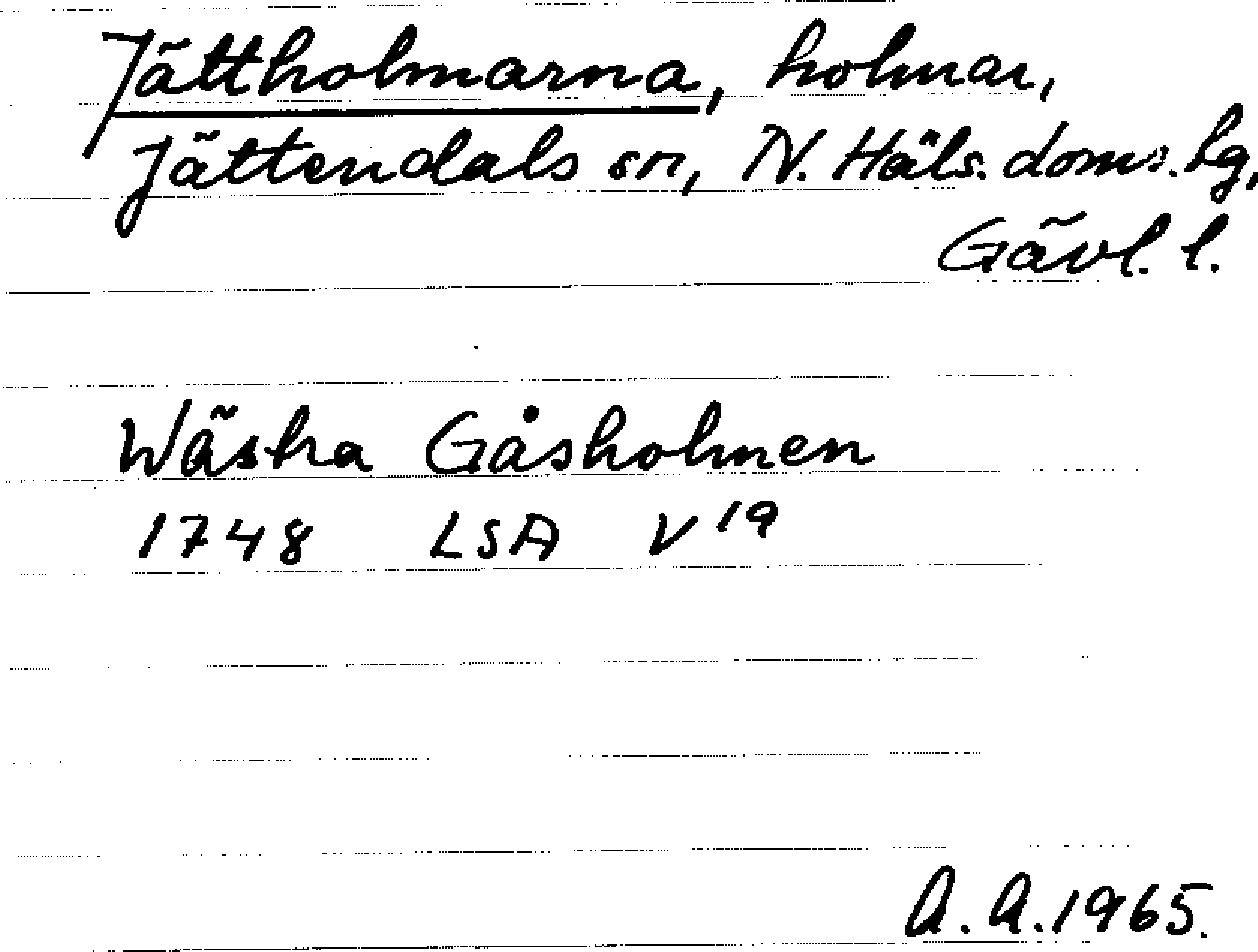 Jättholmarna, holmar,
Jättendals sn, N. Häls. doms. hg,
Gävl. l.
Wästra Gåsholmen
1748 LSA V 19
A. A. 1965.